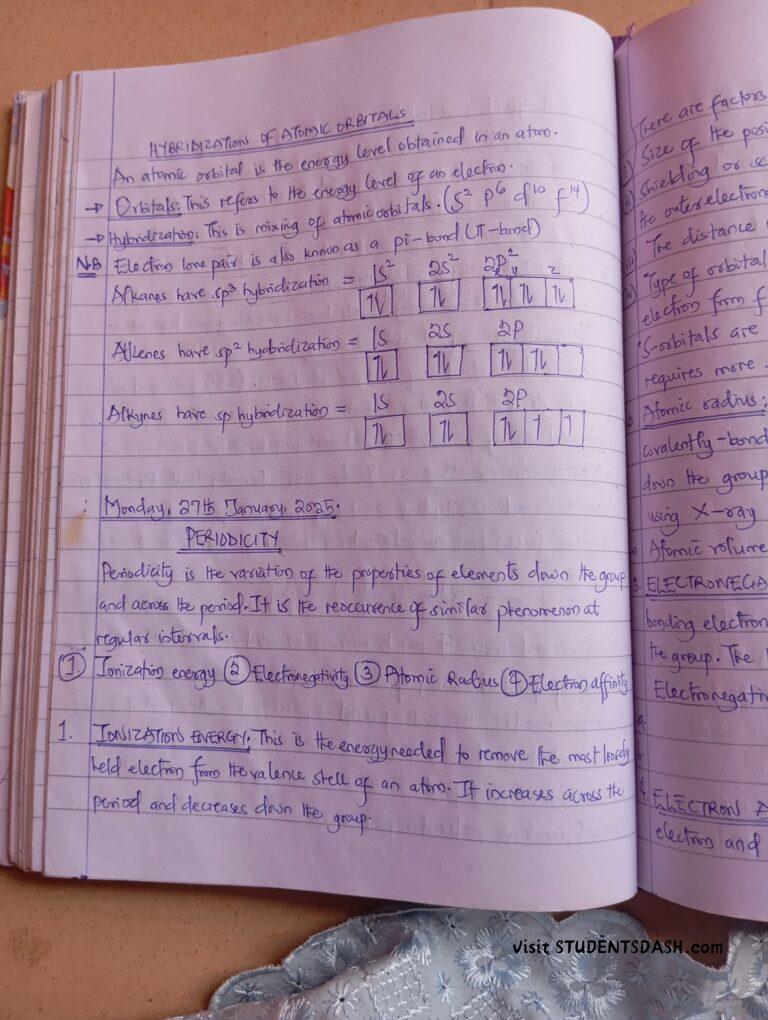 HYBRIDIZATION OF ATOMIC ORBITALS
An atomic orbital is the energy level obtained in an atom.
→ Orbitals: This refers to the energy level of an electron. (S² P⁶ d¹⁰ f¹⁴)
→ Hybridization: This is mixing of atomic orbitals.
NB Electron lone pair is also known as a pi-bond (π-bond)
Alkanes have sp³ hybridization = 1S² 2S² 2P²
y z
1↓ 1↓ 1↓ 1↓ 1↓
Alkenes have sp² hybridization = 1S 2S 2P
1↓ 1↓ 1↓ 1↓
Alkynes have sp hybridization = 1S 2S 2P
1↓ 1↓ 1↓ 1 1
Monday, 27th January, 2025.
PERIODICITY
Periodicity is the variation of the properties of elements down the group
and across the period. It is the reoccurrence of similar phenomenon at
regular intervals.
① Ionization energy ② Electronegativity ③ Atomic Radius ④ Electron affinity
1. IONIZATION ENERGY: This is the energy needed to remove the most loosely
held electron from the valence shell of an atom. It increases across the
period and decreases down the group.
There are factors
Size of the
Shielding or
the outer electron
The distance
Type of orbital
electron from
S-orbitals are
requires more
Atomic radius:
covalently-bond
down the group
using X-ray
Atomic volume
3. ELECTRONEGA
bonding electron
the group. The
Electronegativ
4. ELECTRON A
electron and
Visit STUDENTSDASH.com